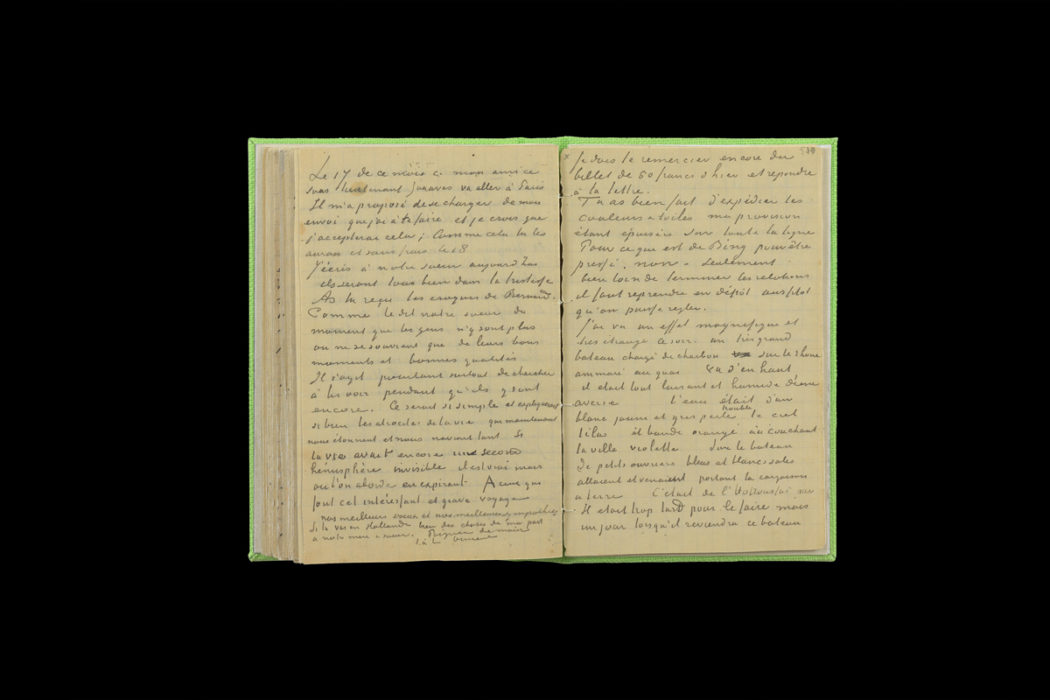 Le 17 de ce mois ci mon ami ce
sous lieutenant zouaves va aller à Paris
Il m'a proposé de se charger de mon
envoi que j'ai à te faire et je crois que
j'accepterai cela; comme cela tu les
auras et sans frais le 18
J'écris à notre soeur aujourd'hui
ils seront tous bien dans la tristesse
As tu reçu les croquis de Bernard.
Comme le dit notre soeur du
moment que les gens n'y sont plus
on ne se souvient que de leurs bons
moments et bonnes qualités
Il s'agit pourtant surtout de chercher
à les voir pendant qu'ils y sont
encore. Ce serait si simple et expliquerait
si bien les atrocités de la vie qui maintenant
nous étonnent et nous navrent tant. Si
la vie avait encore une second
hémisphère invisible il est vrai mais
où l'on aborde en expirant A ceux qui
font cet intéressant et grave voyage
nos meilleurs voeux et nos meilleures sympathies
Si tu vas en Hollande bien des choses de ma part
à notre mère & soeur. Poignée de main
t. à t. Vincent
x Je dois te remercier encore du
billet de 50 francs d'hier et répondre
à ta lettre.
Tu as bien fait d'expédier les
couleurs & toiles ma provision
étant épuisée sur toute la ligne
Pour ce que est de Bing peut être
pressé, non – seulement
bien loin de terminer les relations
il faut reprendre en dépôt aussitot
qu'on puisse regler.
J'ai vu un effet magnifique et
très étrange ce soir. un très grand
bateau chargé de charbon sur le Rhone
ammaré au quai Vu d'en haut
il était tout luisant et humide d'une
averse l'eau était d'un
blanc jaune et gris perle trouble le ciel
lilas et bande orangé au couchant
la ville violette Sur le bateau
de petits ouvriers bleus et blancs sales
allaient et venaient portant la cargaison
à terre C'était de l'Hokousaï pur
Il etait trop tard pour le faire mais
un jour lorsqu'il reviendra ce bateau